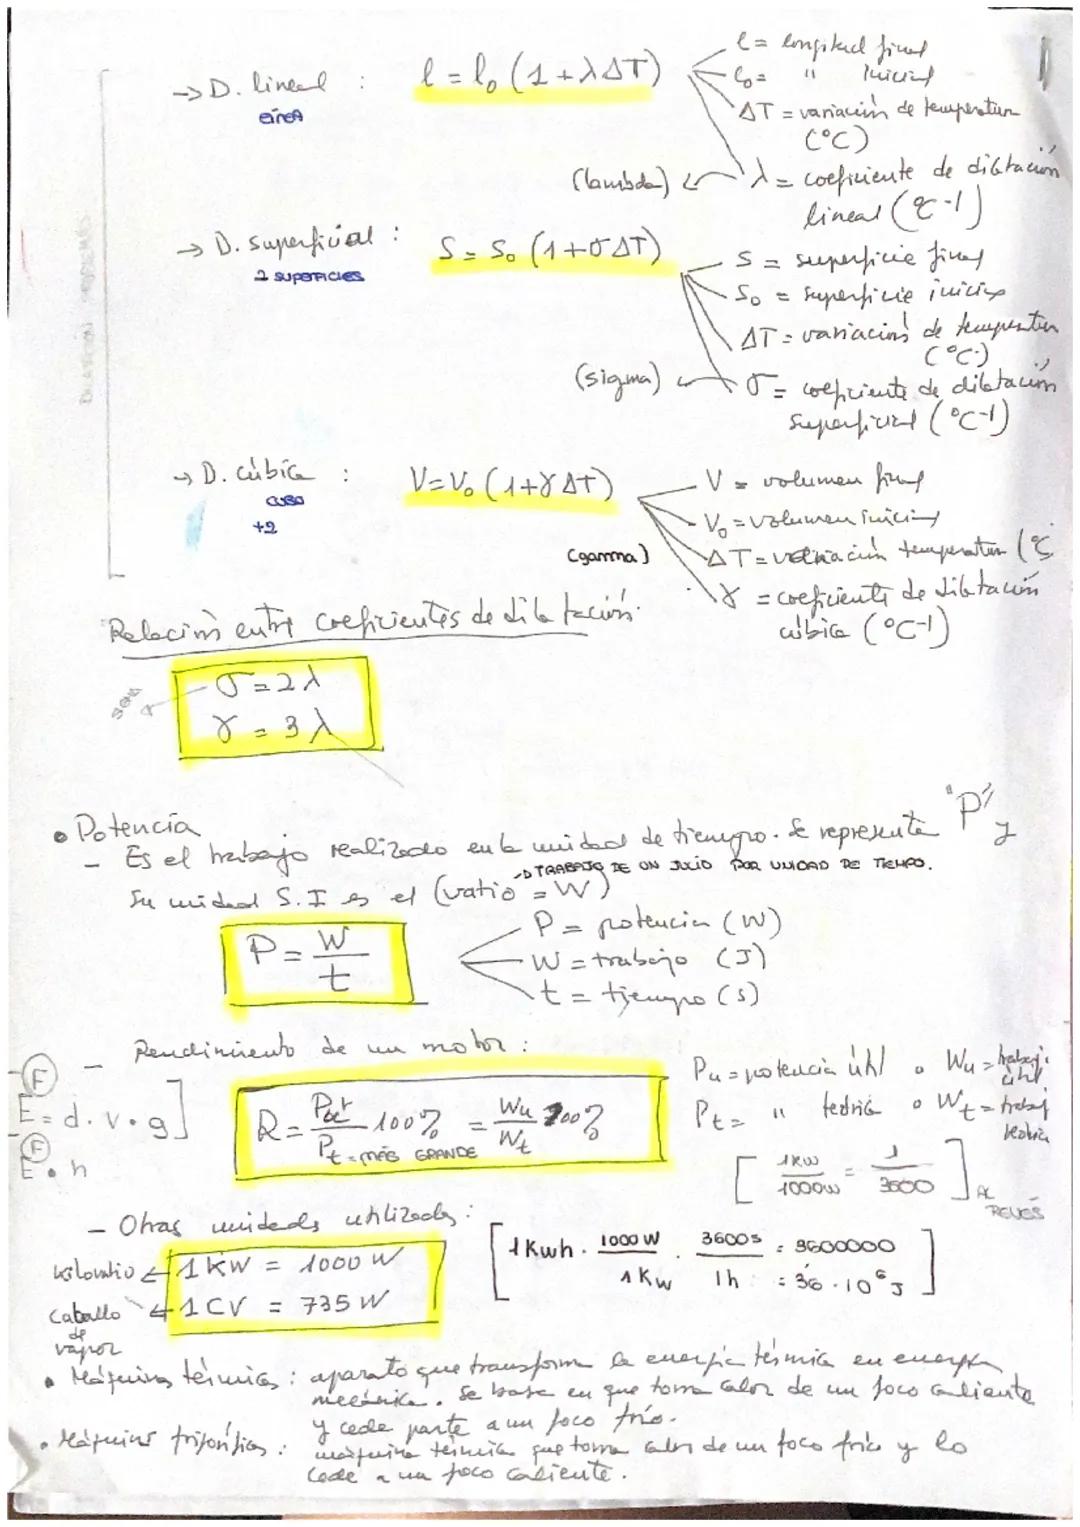 → D. lineal : l = l₀ (1 + λΔT)
línea
l = longitud final
l₀ = " inicial
ΔT = variación de temperatura (°C)
(lambda) λ = coeficiente de dilatación lineal (°C-1)
→ D. superficial : S = S₀ (1 + σΔT)
2 SUPERFICIES
S = superficie final
S₀ = superficie inicial
ΔT = variación de temperatura (°C)
(sigma) σ = coeficiente de dilatación superficial (°C-1)
→ D. cúbica : V = V₀ (1 + γΔT)
CUBO
+2
V = volumen final
V₀ = volumen inicial
ΔT = variación temperatura (°C
(gamma)
γ = coeficiente de dilatación cúbica (°C-1)
Relación entre coeficientes de dilatación.
σ = 2λ
γ = 3λ
• Potencia
- Es el trabajo realizado en la unidad de tiempo. Se representa "P" y
→ TRABAJO DE UN JULIO POR UNIDAD DE TIEMPO.
su unidad S.I es el (vatio = W)
P = W / t
P = potencia (W)
W = trabajo (J)
t = tiempo (s)
- Rendimiento de un motor :
(F)
E = d · v · g]
(F)
E · h
R = Pu / Pt 100% = Wu / Wt 100%
= MÁS GRANDE
Pu = potencia útil o Wu = trabaj. útil
Pt = " teórica o Wt = trabaj teórica
[ 1KW / 1000W = 1 / 3600 ] AL REVÉS
- Otras unidades utilizadas :
kilovatio ← 1 KW = 1000 W
caballo de vapor ← 1 CV = 735 W
[ 1 Kwh · 1000 W / 1 Kw · 3600s / 1h = 3600000
= 36 · 10⁶ J ]
• Máquinas térmicas : aparato que transforma la energía térmica en energía
mecánica. Se basa en que toma calor de un foco caliente
y cede parte a un foco frío.
• Máquinas frigoríficas : máquina térmica que toma calor de un foco frío y lo
cede a un foco caliente.